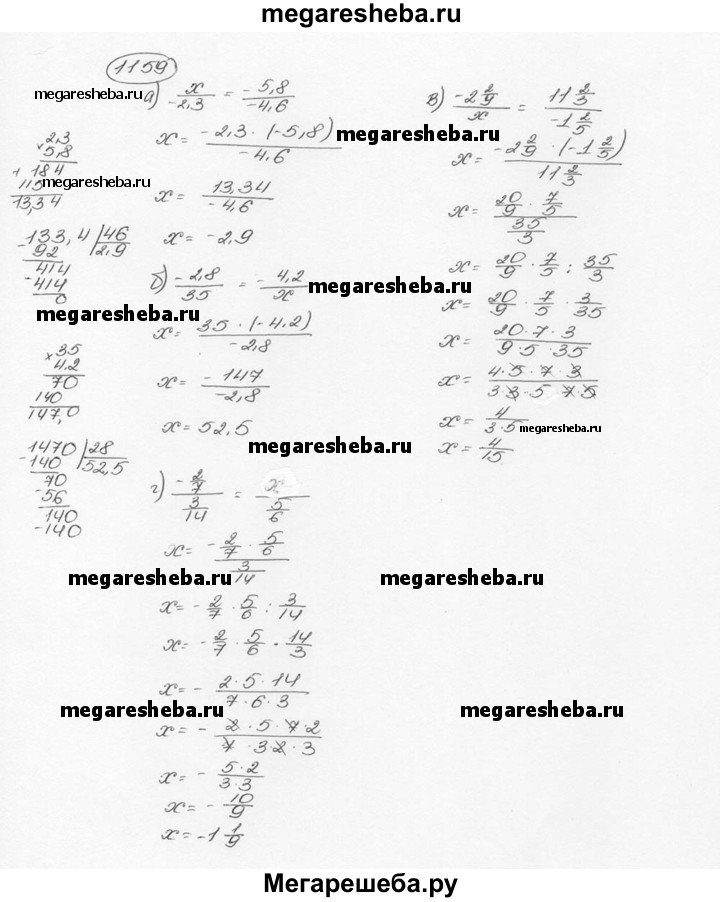 megaresheba.ru
1159
megaresheba.ru
а) x/-2,3 = -5,8/-4,6
x = -2,3 · (-5,8)/-4,6
megaresheba.ru
x = 13,34/-4,6
x = -2,9
× 2,3
5,8
+ 184
115
megaresheba.ru
13,34
-133,4 | 46
92 | 2,9
414
-414
0
б) -2,8/35 = -4,2/x
megaresheba.ru
x = 35 · (-4,2)/-2,8
x = -147/-2,8
x = 52,5
megaresheba.ru
× 35
4,2
70
140
147,0
1470 | 28
-140 | 52,5
70
-56
140
-140
megaresheba.ru
в) -2 2/9/x = 11 2/3/-1 2/5
x = -2 2/9 · (-1 2/5)/11 2/3
x = 20/9 · 7/5/35/3
x = 20/9 · 7/5 : 35/3
x = 20/9 · 7/5 · 3/35
x = 20 · 7 · 3/9 · 5 · 35
x = 4 · 5 · 7 · 3/3 3 · 5 7 · 5
x = 4/3 · 5
megaresheba.ru
x = 4/15
г) -2/7/3/14 = x/5/6
x = -2/7 · 5/6/3/14
megaresheba.ru
megaresheba.ru
x = -2/7 · 5/6 : 3/14
x = -2/7 · 5/6 · 14/3
x = - 2 · 5 · 14/7 · 6 · 3
megaresheba.ru
megaresheba.ru
x = - 2 · 5 · 7 · 2/7 · 3 · 2 · 3
x = - 5 · 2/3 · 3
x = - 10/9
x = -1 1/9
Мегарешеба.ру